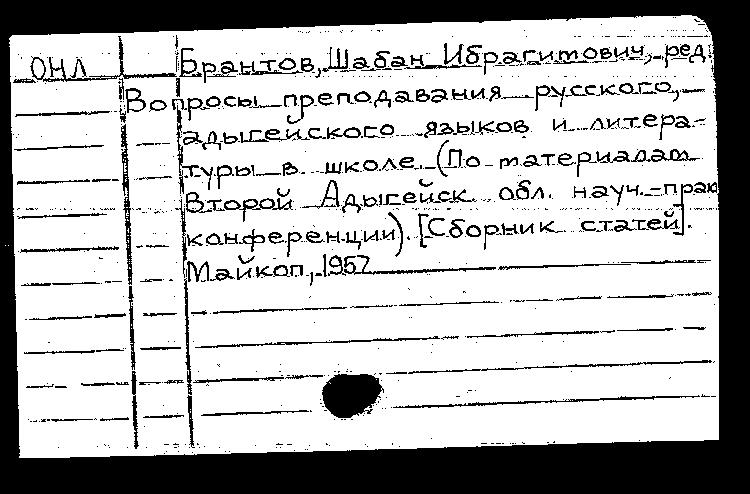 ОНЛ Брантов, Шабан Ибрагимович, ред
Вопросы преподавания русского,
адыгейского языков и литера-
туры в школе (По материалам
Второй Адыгейск. обл. науч.-прак
конференции). [Сборник статей].
Майкоп, 1957